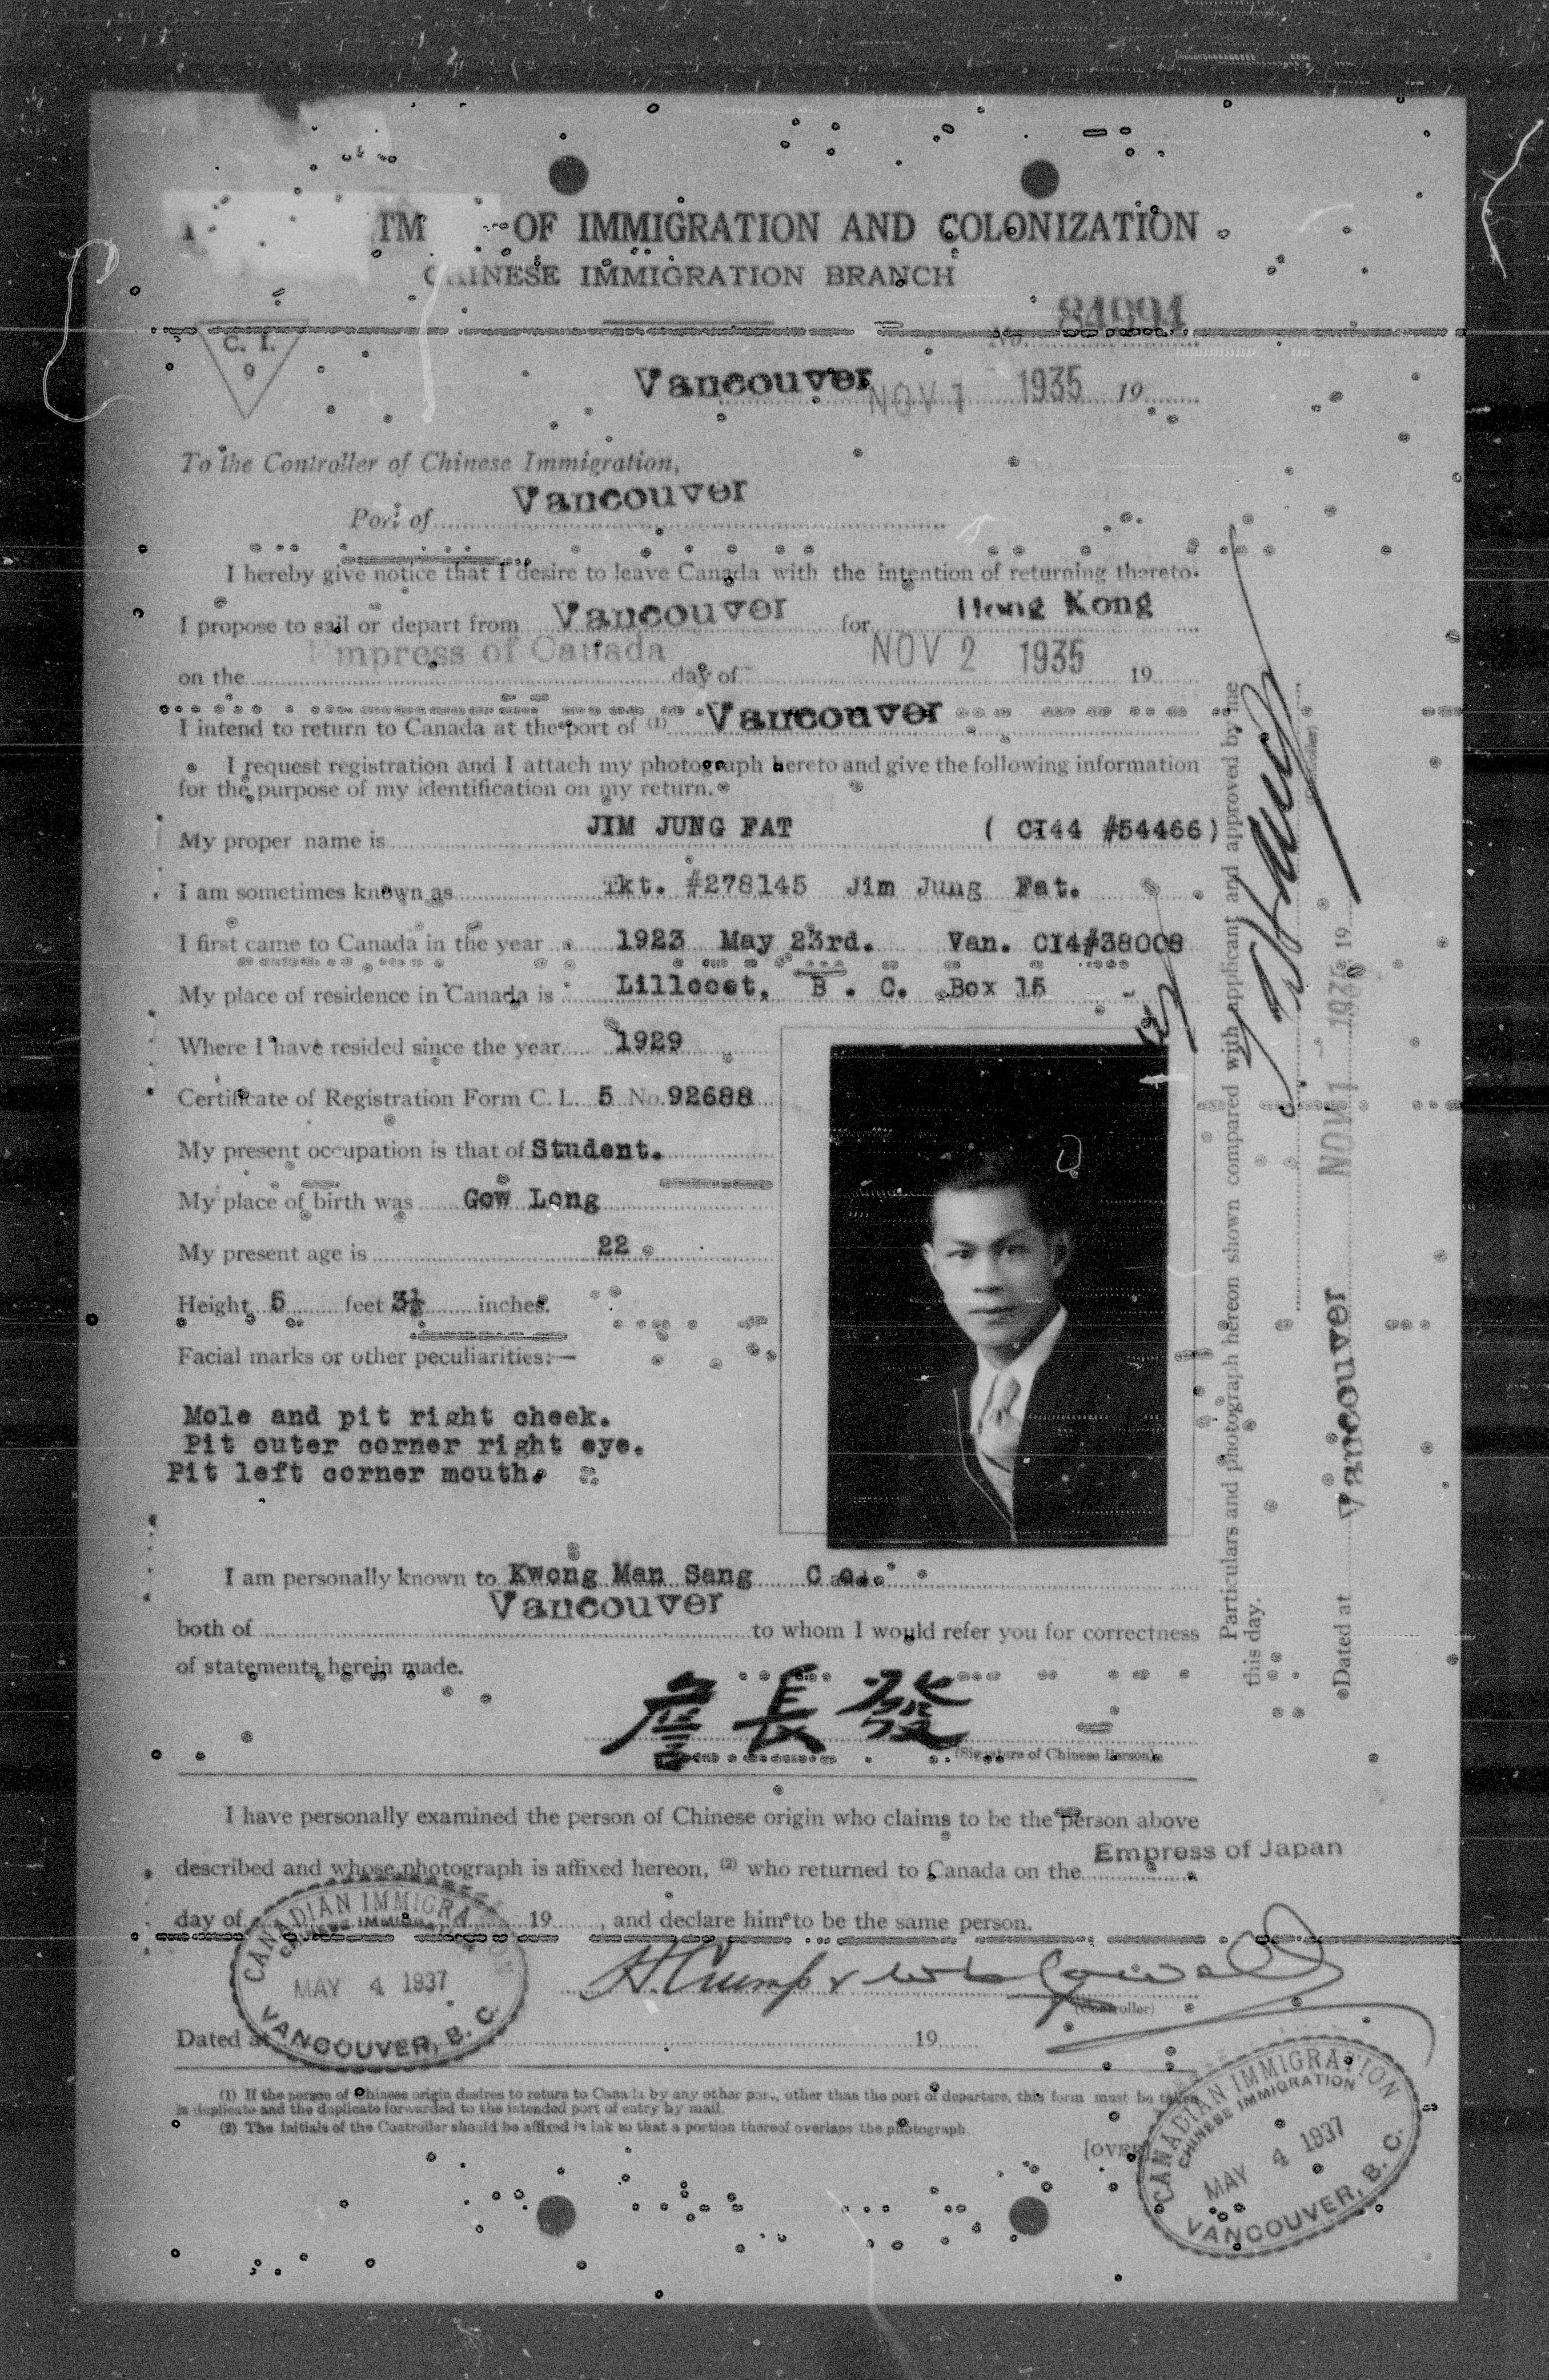 TM OF IMMIGRATION AND COLONIZATION
CHINESE IMMIGRATION BRANCH
C. I.
9
No. 84994
Vancouver NOV 1 1935 19
To the Controller of Chinese Immigration,
Port of Vancouver
I hereby give notice that I desire to leave Canada with the intention of returning thereto.
I propose to sail or depart from Vancouver for Hong Kong
Empress of Canada
on the day of NOV 2 1935 19
I intend to return to Canada at the port of (1) Vancouver
I request registration and I attach my photograph hereto and give the following information
for the purpose of my identification on my return.
My proper name is JIM JUNG FAT ( CI44 #54466)
I am sometimes known as Tkt. #278145 Jim Jung Fat.
I first came to Canada in the year 1923 May 23rd. Van. CI4#38008
My place of residence in Canada is Lillooet, B. C. Box 15
Where I have resided since the year 1929
Certificate of Registration Form C. I. 5 No. 92688
My present occupation is that of Student.
My place of birth was Gow Long
My present age is 22
Height 5 feet 3½ inches.
Facial marks or other peculiarities:—
Mole and pit right cheek.
Pit outer corner right eye.
Pit left corner mouth.
I am personally known to Kwong Man Sang Co. and
both of Vancouver to whom I would refer you for correctness
of statements herein made.
詹長發
(Signature of Chinese Person)
I have personally examined the person of Chinese origin who claims to be the person above
described and whose photograph is affixed hereon, (2) who returned to Canada on the Empress of Japan
day of 19 , and declare him to be the same person.
(Controller)
Dated at 19
CANADIAN IMMIGRATION
CHINESE IMMIGRATION
MAY 4 1937
VANCOUVER, B. C.
(1) If the person of Chinese origin desires to return to Canada by any other port, other than the port of departure, this form must be taken
in duplicate and the duplicate forwarded to the intended port of entry by mail.
(2) The initials of the Controller should be affixed in ink so that a portion thereof overlaps the photograph.
[OVER]
CANADIAN IMMIGRATION
CHINESE IMMIGRATION
MAY 4 1937
VANCOUVER, B. C.
Particulars and photograph hereon shown compared with applicant and approved by me
this day.
(Controller)
Dated at Vancouver NOV 1 1935 19